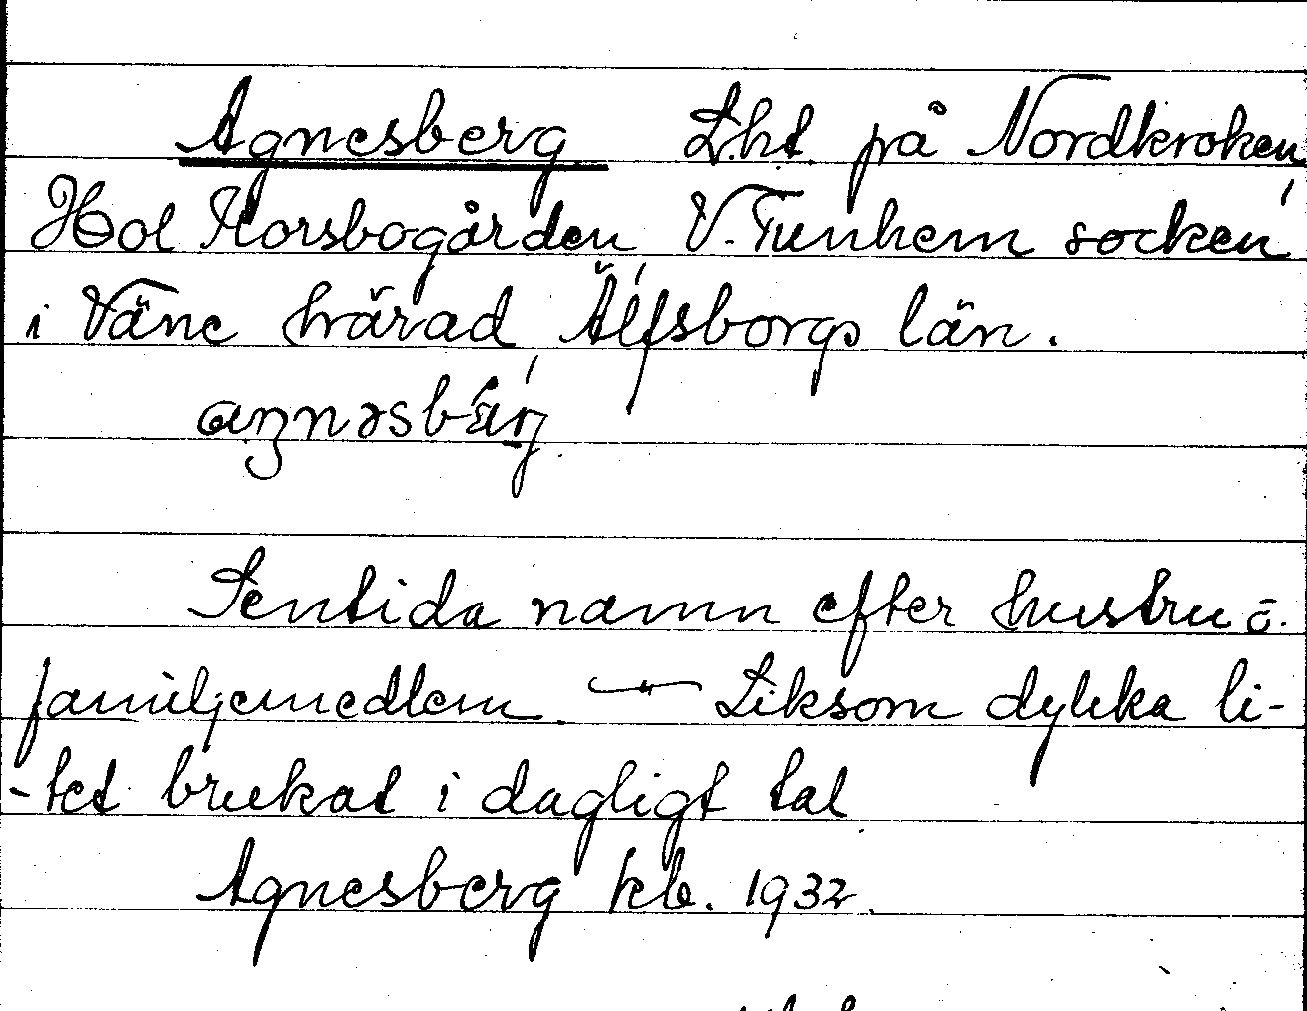 Agnesberg Lht. på Nordkroken,
Hol Korsbogården V. Tunhem socken
i Väne härad, Älfsborgs län.
Sentida namn efter hustru o.
familjemedlem. — Liksom dylika li-
-tet brukat i dagligt tal
Agnesberg kb. 1932.